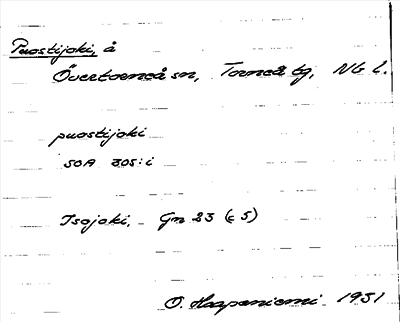 Puostijoki, å
Övertorneå sn, Torneå tg, NG L.
puostijoki
SOA 305:i
Isojoki, Gn 23 (c 5)
O. Haapaniemi 1931